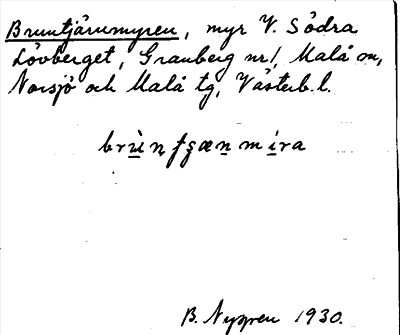 Bruntjärnmyren, myr V. Södra
Lövberget, Granberg nr 1, Malå sn,
Norsjö och Malå tg, Västerb. l.
brùn̥ʈʂæn̥mi̱ra
B. Nygren 1930.